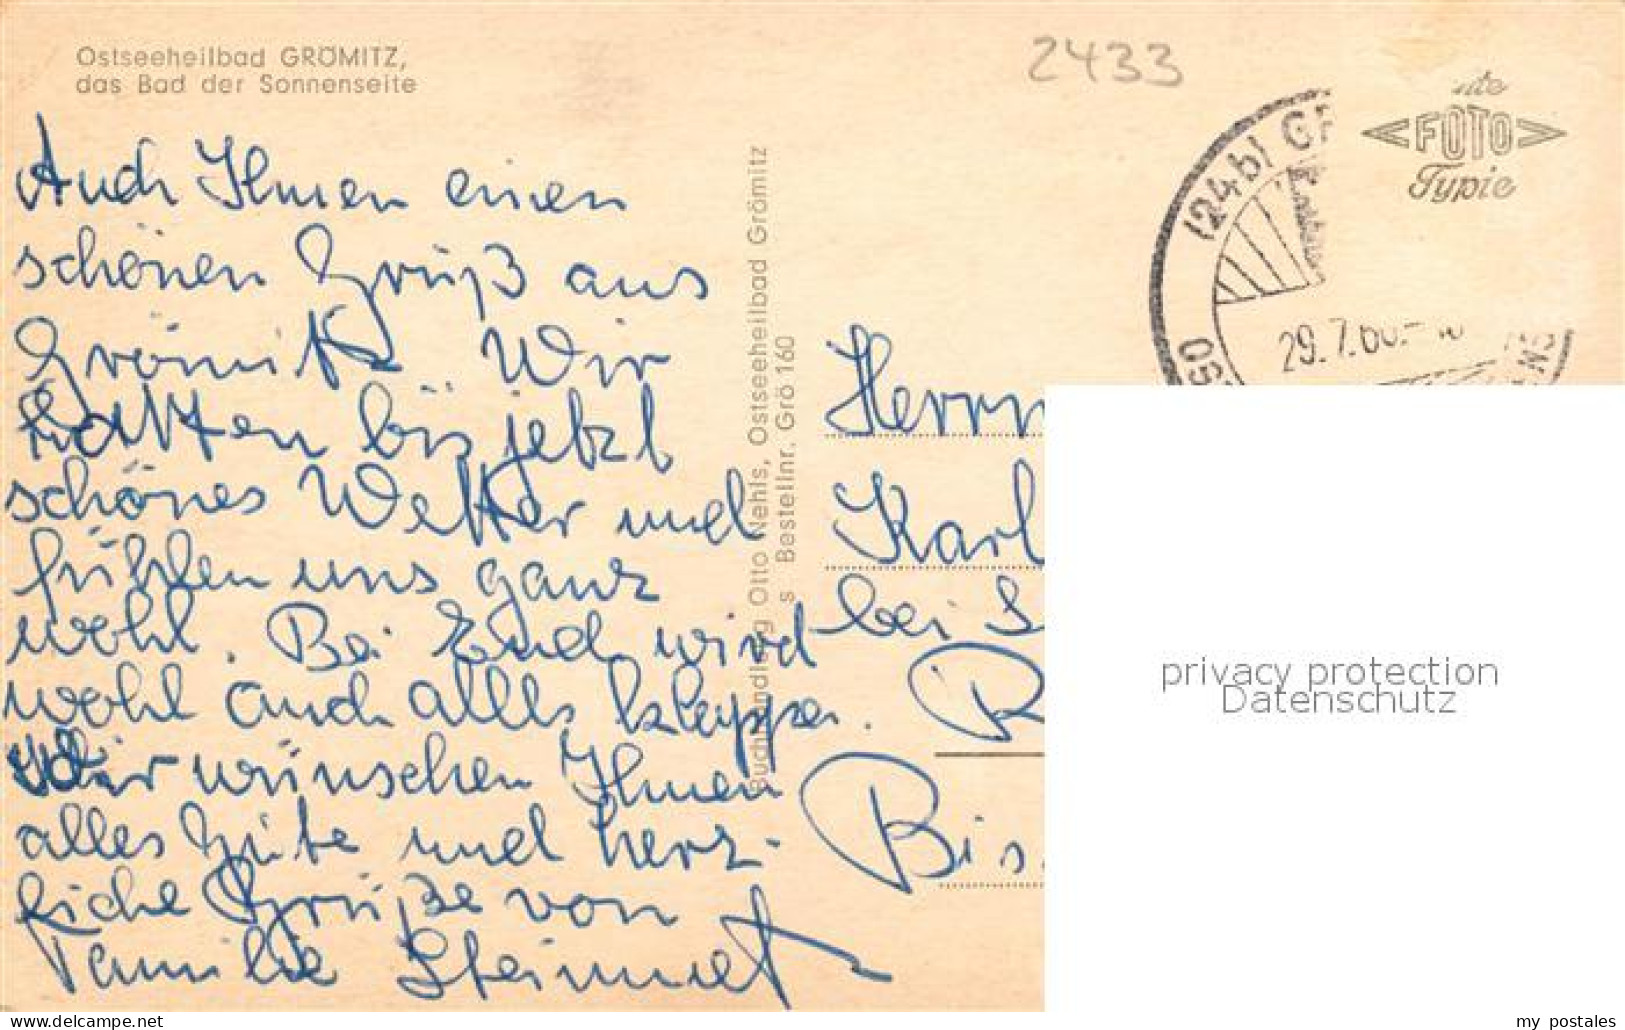 Ostseeheilbad GRÖMITZ,
das Bad der Sonnenseite
2433
(24b) GR
29.7.60.-
Echte
<FOTO>
Typie
Auch Ihnen einen
schönen Gruß aus
Grömitz Wir
hatten bis jetzt
schönes Wetter und
fühlen uns ganz
wohl. Bei Euch wird
wohl auch alles klappen.
Wir wünschen Ihnen
alles Gute und herz-
liche Grüße von
Familie Steinmet
Buchhandlung Otto Nehls, Ostseeheilbad Grömitz
s Bestellnr. Grö 160
Herrn
Karl
bei S
R
Bis
privacy protection
Datenschutz
my_postales